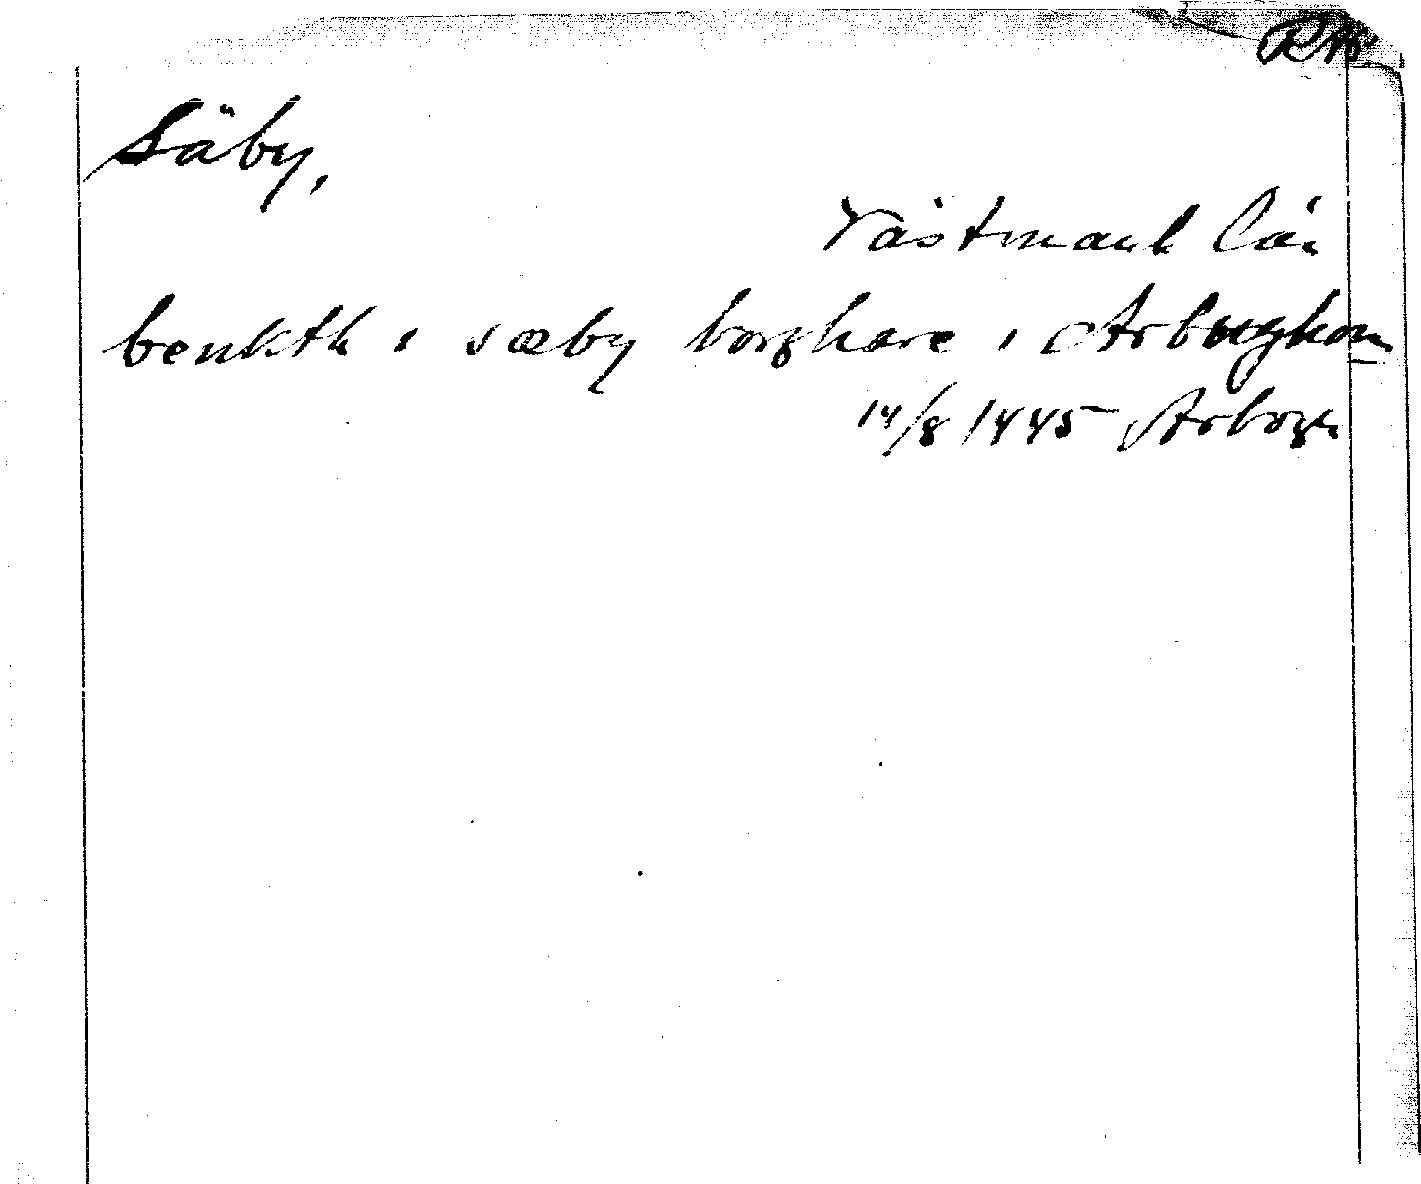 RA
Säby,
Västmanl. län
benkth i sæby borghare i Arboghom
14/8 1445 Arbogh